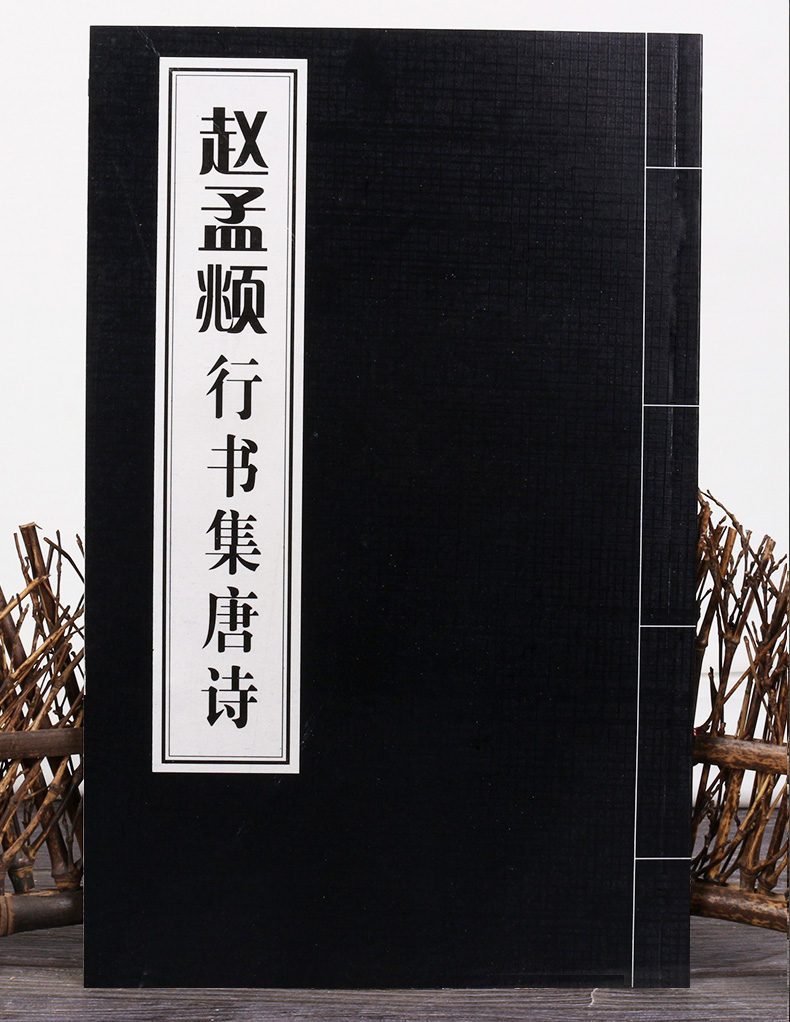 赵孟𫖯行书集唐诗